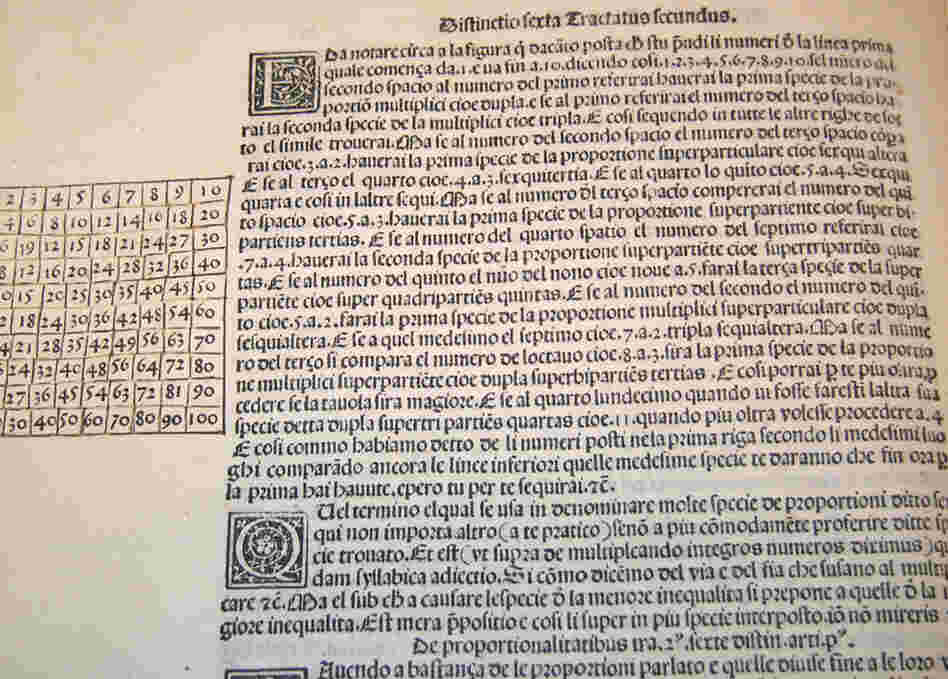 Distinctio sexta Tractatus secundus.
E Da notare circa a la figura q̃ dacãto posta ch̃ stu p̃ndi li numeri d̃ la linea prima
quale comença da .1. e va fin a .10. dicendo cosi .1.2.3.4.5.6.7.8.9.10. sel nũero del
secondo spacio al numero del primo referirai haverai la prima specie de la pro
portiõ multiplici cioe dupla. e se al primo referirai el numero del terço spacio ha
rai la seconda specie de la multiplici cioe tripla. E cosi sequendo in tutte le altre righe de sot
to el simile trouerai. Ma se al numero del secondo spacio el numero del terço spacio cõpa
rai cioe .3.a.2. hauerai la prima specie de la proportione superparticulare cioe sexqui altera
E se al terço el quarto cioe .4.a.3. sexquitertia. E se al quarto lo quito cioe .5.a.4. Sexqui
quarta e cosi in laltre sequi. Ma se al numero dl̃ terço spacio compererai el numero del qui
to spacio cioe .5.a.3. hauerai la prima specie de la proportione superpartiente cioe super bi-
partiens tertias. E se al numero del quarto spatio el numero del septimo referirai cioe
.7.a.4. hauerai la seconda specie de la proportione superpartiẽte cioe supertripartiẽs quar
tas. E se al numero del quinto el nũo del nono cioe noue a.5. farai la terça specie de la super
partiẽte cioe super quadripartiẽs quintas. E se al numero del secondo el numero del qui-
to cioe .5.a.2. farai la prima specie de la proportione multiplici superparticulare cioe dupla
sesquialtera. E se a quel medesimo el septimo cioe .7.a.2. tripla sequialtera. Ma se al nume
ro del terço si compara el numero de loctauo cioe .8.a.3. sira la prima specie de la proportio
ne multiplici superpartiẽte cioe dupla superbipartiẽs tertias. E cosi porrai p̃ te piu oltra p̃
cedere se la tauola sira magiore. E se al quarto lundecimo quando vi fosse faresti laltra sua
specie detta dupla supertri partiẽs quartas cioe .11. quando piu oltra volesse procedere a .4
E cosi commo habiamo detto de li numeri posti nela prima riga secondo li medesimi luo
ghi comparãdo ancora le linee inferiori quelle medesime specie te daranno che fin ora p
la prima hai hauute. epero tu per te sequirai. ⁊c̃.
Q Uel termino elqual se usa in denominare molte specie de proportioni ditto s
qui non importa altro (a te pratico) senõ a piu cõmodamẽte proferire ditte s
cie trouato. Et est (vt supra de multiplicando integros numeros diximus) q
dam syllabica adiectio. Si cõmo dicẽmo del via e del fia che susano al multip
care ⁊c̃. Ma el sub ch̃ a causare lespecie d̃ la menore inequalita si prepone a quelle d̃ la
giore inequalita. Est mera p̃positio e cosi li super in piu specie interposto. iõ nõ mireris
De proportionalitatibus tra. 2ꝰ. sexte distin. arti. pꝰ.
Auendo a bastança de le proportioni parlato e quelle diuise fine a le loro
2 3 4 5 6 7 8 9 10
4 6 8 10 12 14 16 18 20
6 9 12 15 18 21 24 27 30
8 12 16 20 24 28 32 36 40
0 15 20 25 30 35 40 45 50
2 18 24 30 36 42 48 54 60
4 21 28 35 42 49 56 63 70
24 32 40 48 56 64 72 80
27 36 45 54 63 72 81 90
30 40 50 60 70 80 90 100